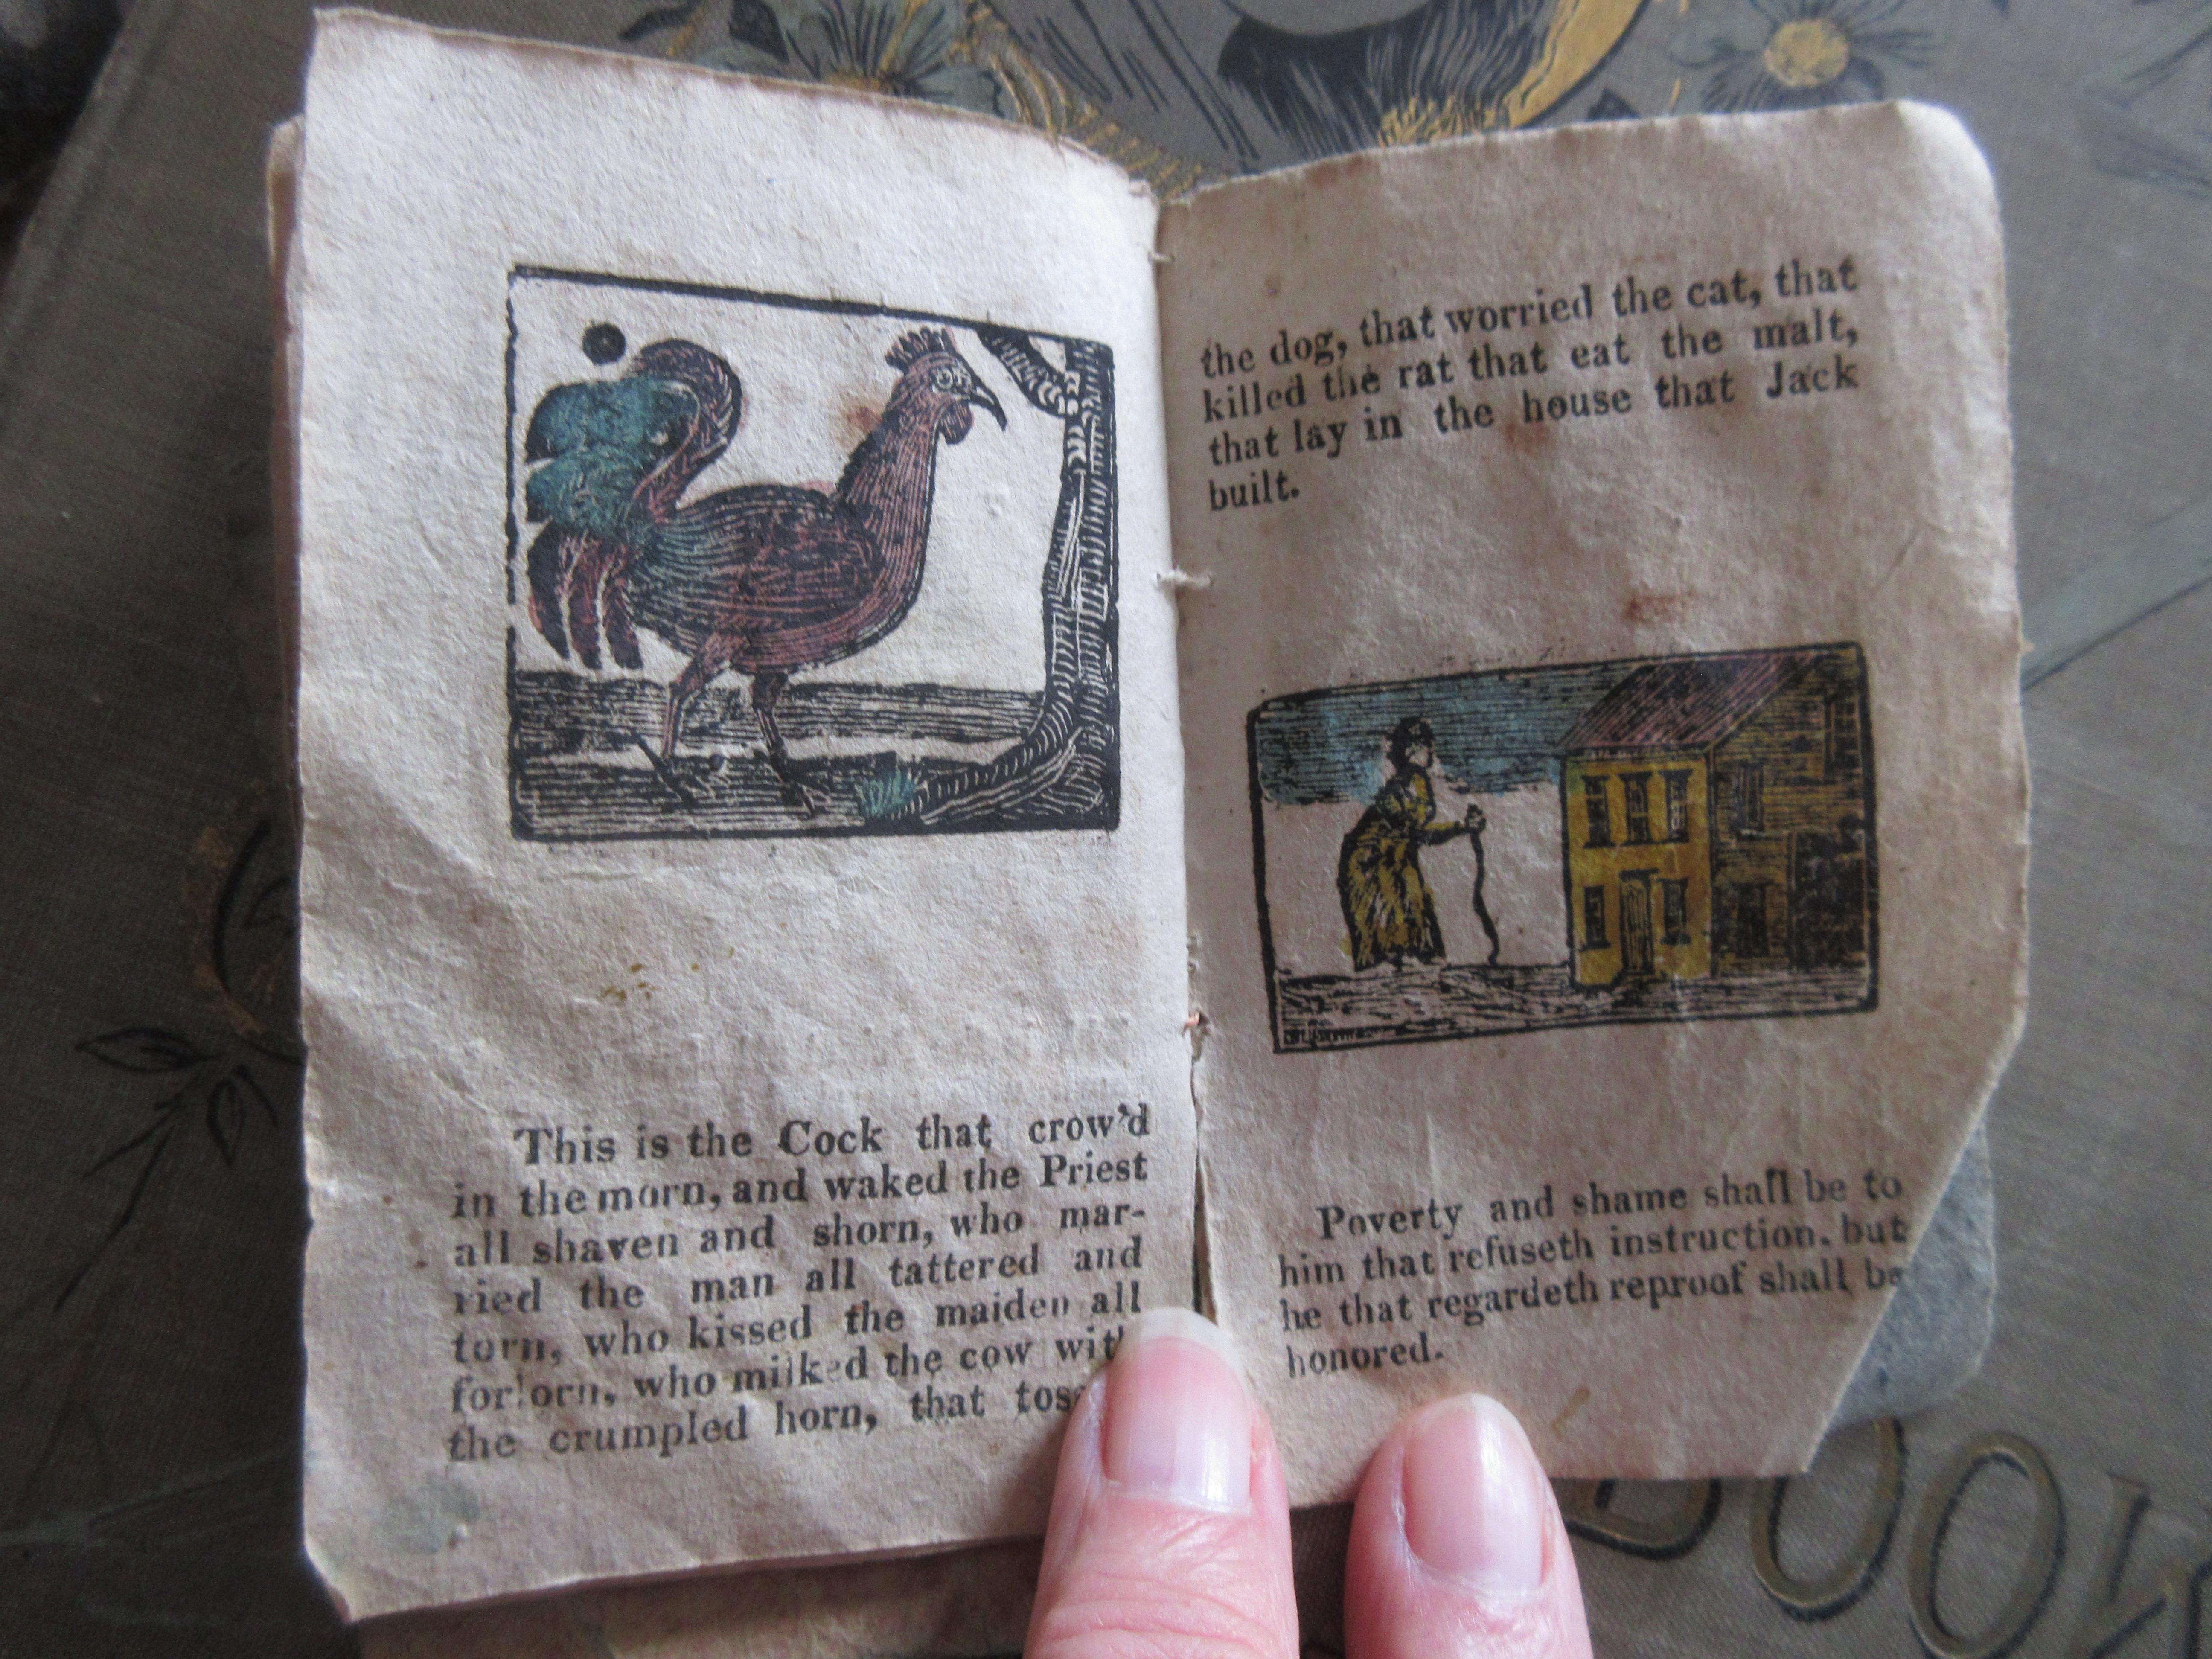 This is the Cock that crow'd
in the morn, and waked the Priest
all shaven and shorn, who mar-
ried the man all tattered and
torn, who kissed the maiden all
forlorn, who milked the cow with
the crumpled horn, that
the dog, that worried the cat, that
killed the rat that eat the malt,
that lay in the house that Jack
built.
Poverty and shame shall be to
him that refuseth instruction, but
he that regardeth reproof shall be
honored.